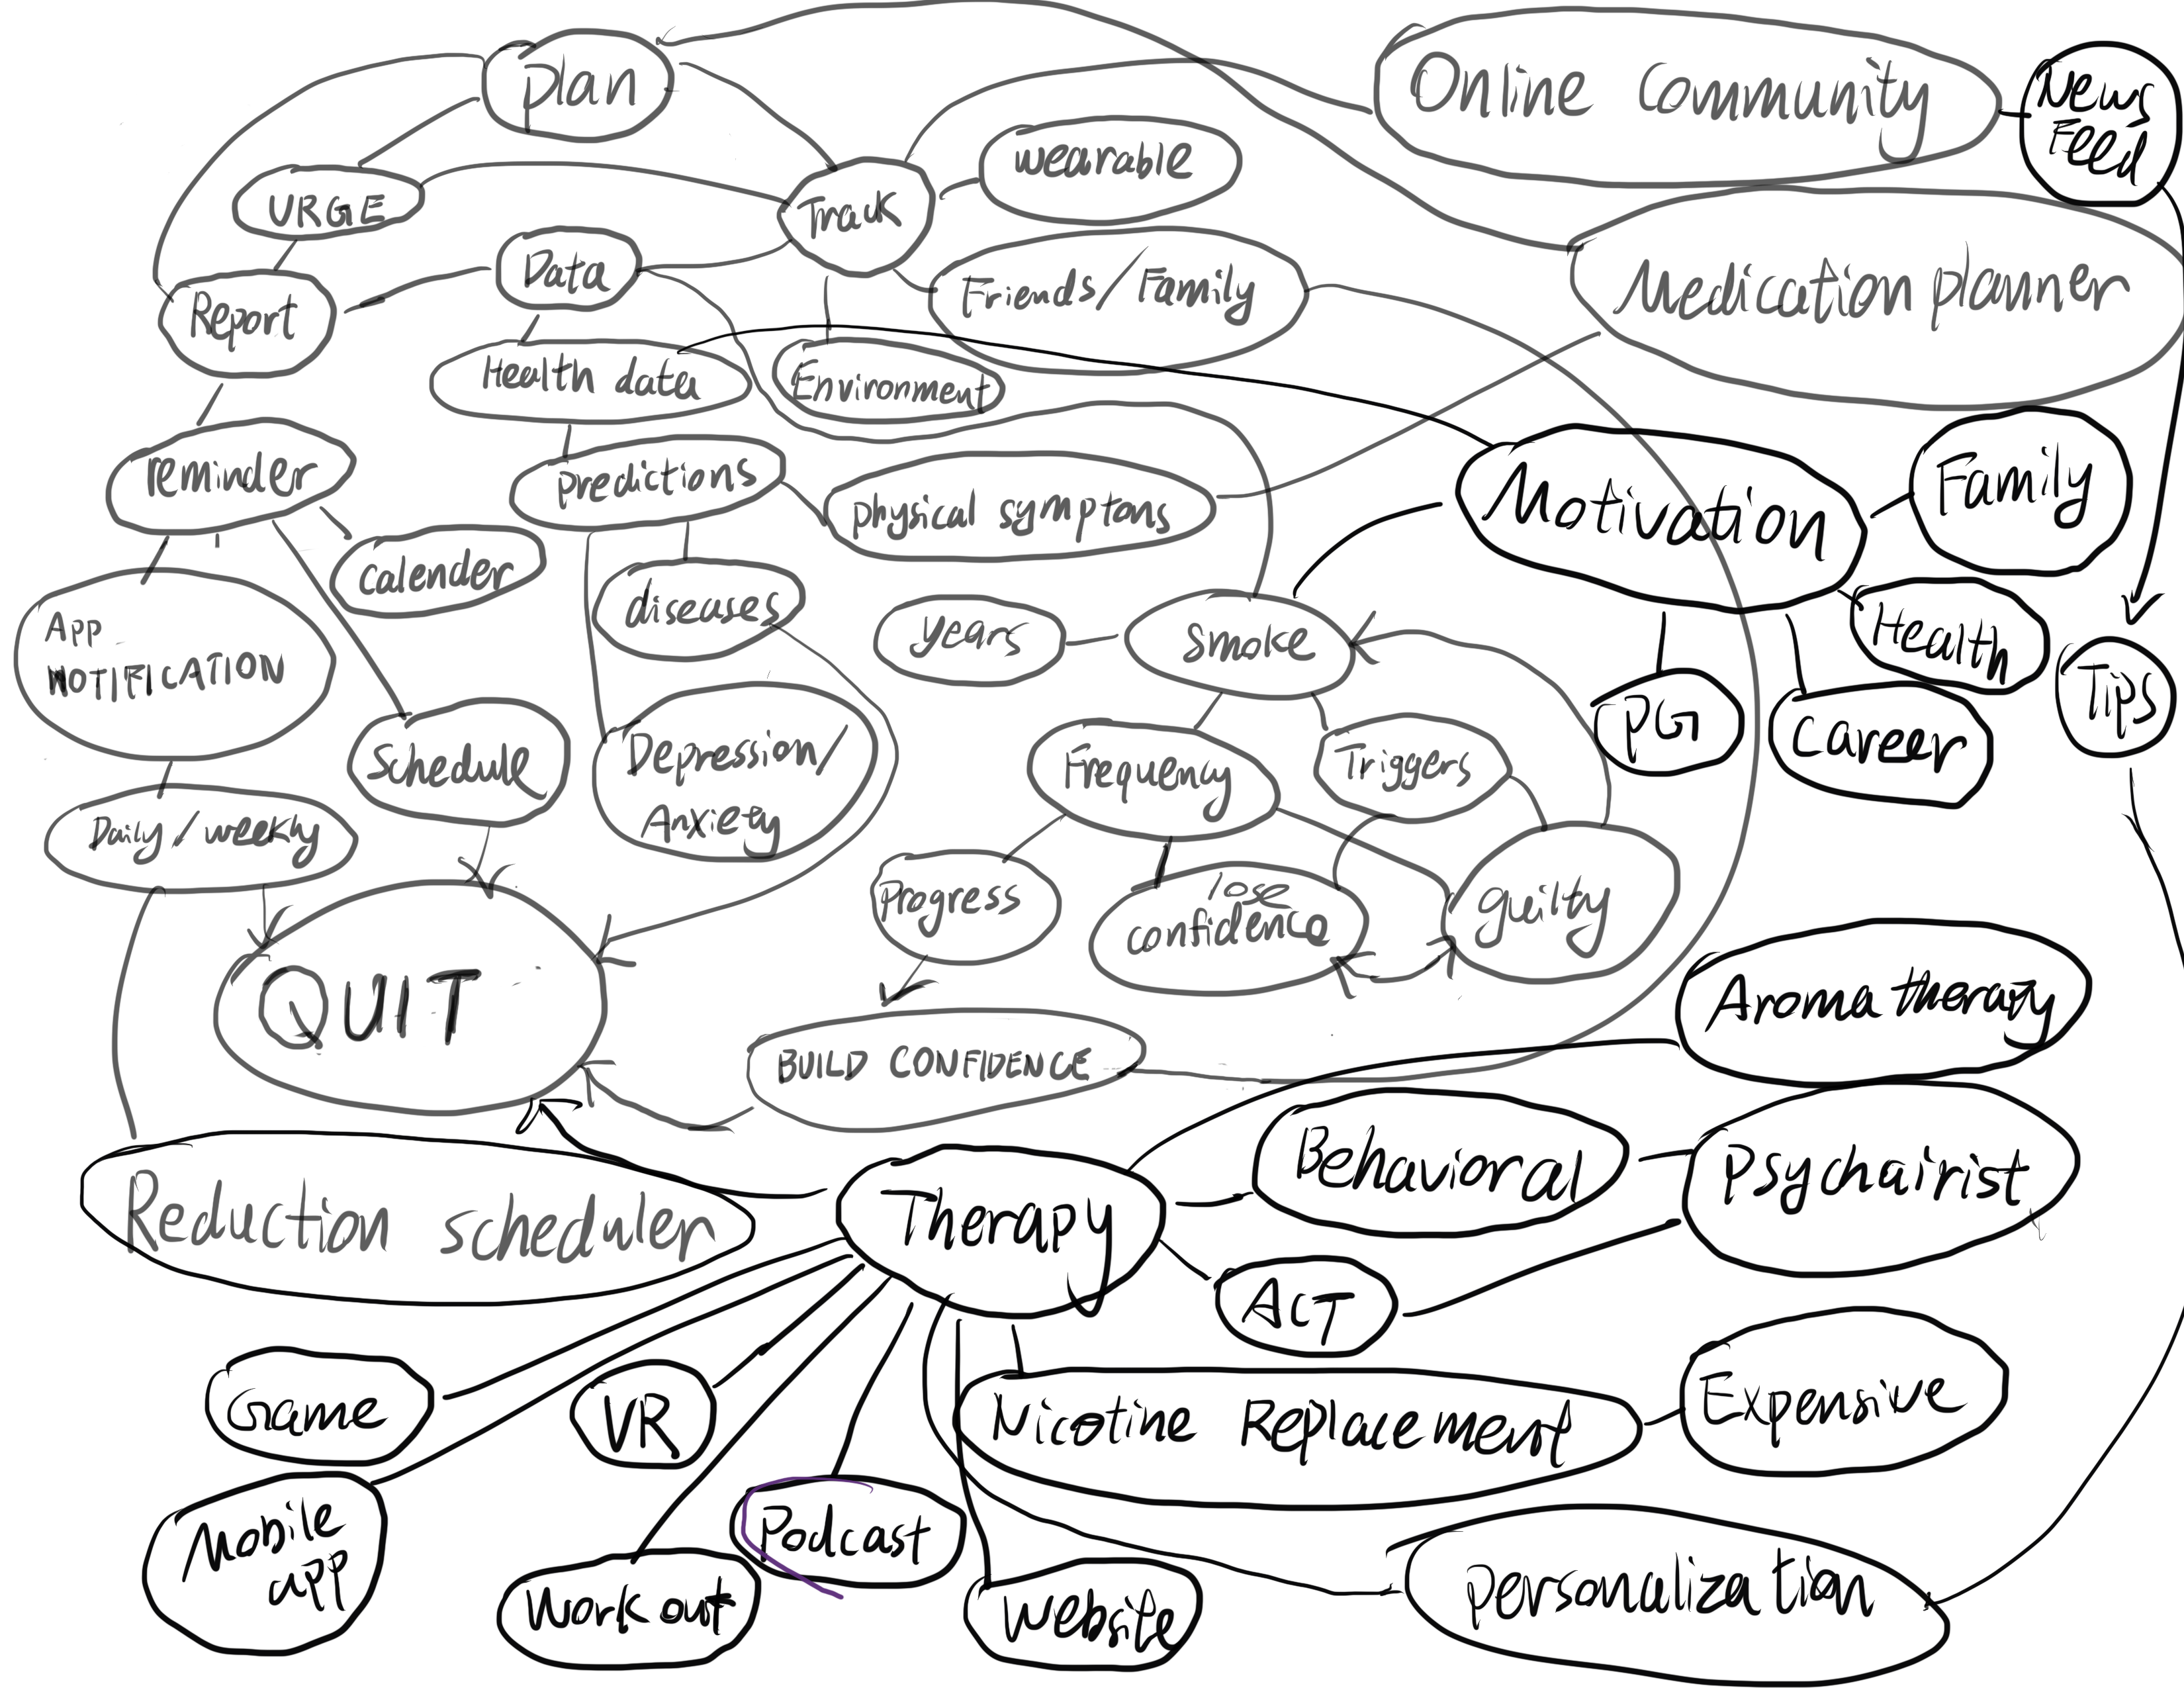 Plan
Online Community
News
Feed
URGE
Track
wearable
Data
Friends/Family
Medication planner
Report
Health data
Environment
reminder
predictions
physical symptons
Motivation
Family
calender
diseases
years
Smoke
Health
App
NOTIFICATION
PG
Career
Tips
Schedule
Depression/
Anxiety
Frequency
Triggers
Daily / weekly
Progress
lose
confidence
guilty
QUIT
Aroma therapy
BUILD CONFIDENCE
Behavioral
Psychairist
Reduction scheduler
Therapy
ACT
Game
VR
Nicotine Replacement
Expensive
Mobile
app
Podcast
Work out
Website
personalization